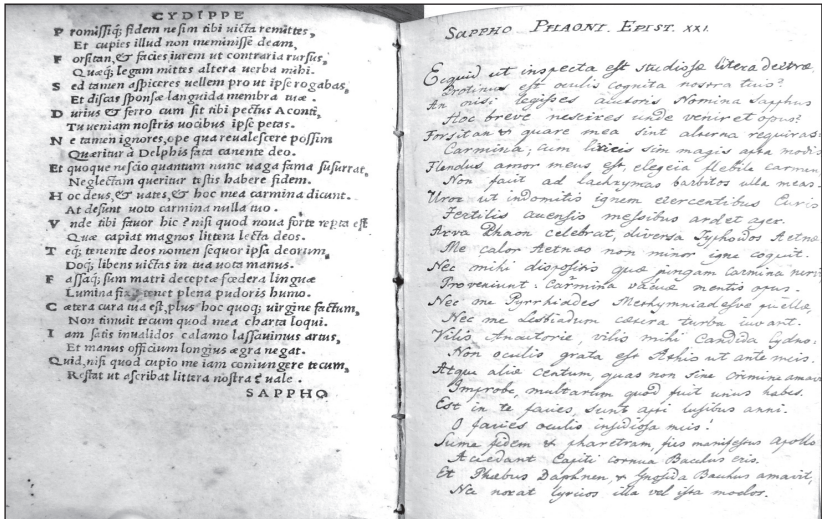 CYDIPPE
P romissiq; fidem ne sim tibi uicta remittes,
Et cupies illud non meminisse deam,
F orsitan, & facies iurem ut contraria rursus,
Quæq; legam mittes altera uerba mihi.
S ed tamen aspiceres uellem pro ut ipse rogabas,
Et discas sponsæ languida membra tuæ.
D urius & ferro cum sit tibi pectus Aconti,
Tu ueniam nostris uocibus ipse petas.
N e tamen ignores, ope qua reualescere possim
Quæritur a Delphis fata canente deo.
Et quoque nescio quantum nunc uaga fama susurrat,
Neglectam queritur testis habere fidem.
H oc deus, & uates, & hoc mea carmina dicunt.
At desunt uoto carmina nulla tuo.
V nde tibi fauor hic? nisi quod noua forte reperta est
Quæ capiat magnos littera lecta deos.
T eq; tenente deos nomen sequor ipsa deorum,
Doq; libens uictas in tua uota manus.
F assaq; sum matri deceptæ fœdera linguæ
Lumina fixa tenet plena pudoris humo.
C ætera cura tua est, plus hoc quoq; uirgine factum,
Non timuit tecum quod mea charta loqui.
I am satis inualidos calamo lassauimus artus,
Et manus officium longius ægra negat.
Quid, nisi quod cupio me iam coniungere tecum,
Restat ut ascribat littera nostra uale.
SAPPHO
SAPPHO PHAONI. EPIST. XXI.
Ecquid ut inspecta est studiosæ litera dextræ
Protinus est oculis cognita nostra tuis?
An nisi legisses autoris Nomina Sapphus
Hoc breve nescires unde veniret opus?
Forsitan & quare mea sint alterna requiras
Carmina; cum lyricis sim magis apta modis
Flendus amor meus est, elegeïa flebile carmen
Non facit ad lachrymas barbitos ulla meas.
Uror ut indomitis ignem exercentibus Euris
Fertilis accensis messibus ardet ager.
Arva Phaon celebrat, diversa Typhoidos Aetnæ
Me calor Aetnæo non minor igne coquit.
Nec mihi dispositis quæ jungam Carmina nervis
Proveniunt: Carmina vacuæ mentis opus.
Nec me Pyrrhiades Methymniadesve puellæ,
Nec me Lesbiadum cætera turba iuvant.
Vilis Anactorie, vilis mihi Candida Cydno:
Non oculis grata est Atthis ut ante meis.
Atque aliæ centum, quas non sine crimine amavi
Improbe, multarum quod fuit unus habes.
Est in te facies, sunt apti lusibus anni.
O facies oculis insidiosa meis!
Sume fidem & pharetram, fies manifestus Apollo
Accedant Capiti cornua Bacchus eris.
Et Phæbus Daphnen, & Gnosida Bacchus amavit,
Nec norat lyricos illa vel ista modos.